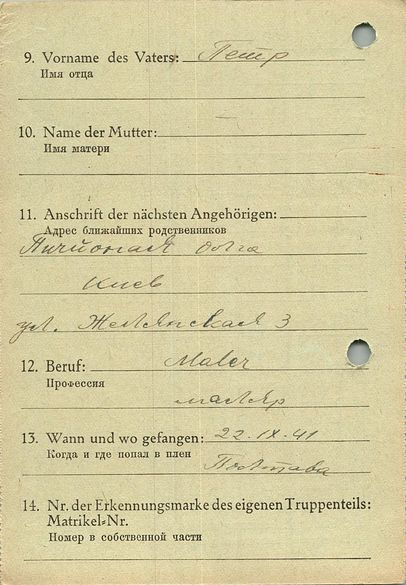 9. Vorname des Vaters: Петр
Имя отца
10. Name der Mutter:
Имя матери
11. Anschrift der nächsten Angehörigen:
Адрес ближайших родственников
Киев
ул. Желянская 3
12. Beruf: Maler
Профессия
маляр
13. Wann und wo gefangen: 22.IX.41
Когда и где попал в плен
Полтава
14. Nr. der Erkennungsmarke des eigenen Truppenteils:
Matrikel-Nr.
Номер в собственной части